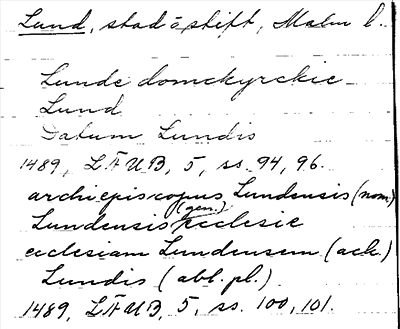 Lund, stad å stift, Malm l.
Lunde domckyrckie
Lund
Datum Lundis
1489, LÄUB, 5, ss. 94, 96.
archiepiscopus Lundensis (nom)
Lundensis (gen.) ecclesie
ecclesiam Lundensem (ack.)
Lundis (abl. pl.)
1489, LÄUB, 5, ss. 100, 101.